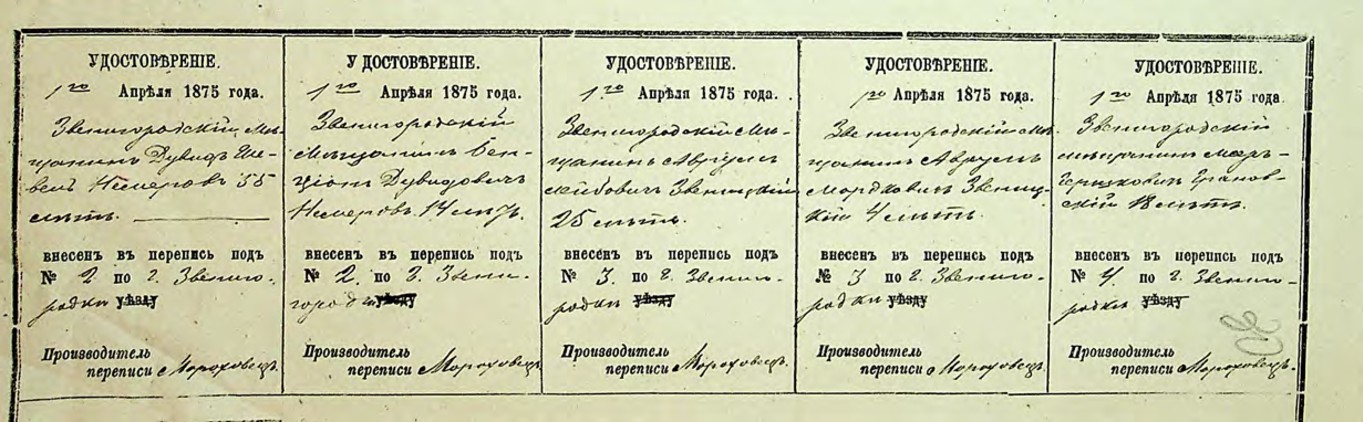 УДОСТОВѢРЕНІЕ.
1го Апрѣля 1875 года.
Звенигородскій мѣ-
щанинъ Дувидъ Ше-
вель Немеровъ 55
лѣтъ.
внесенъ въ перепись подъ
№ 2 по г. Звениго-
родки уѣзду
Производитель
переписи Мороховецъ.
УДОСТОВѢРЕНІЕ.
1го Апрѣля 1875 года.
Звенигородскій
мѣщанинъ Бен-
ціонъ Дувидовичъ
Немеровъ 14 лѣтъ.
внесенъ въ перепись подъ
№ 2. по г. Звени-
городки уѣзду
Производитель
переписи Мороховецъ.
УДОСТОВѢРЕНІЕ.
1го Апрѣля 1875 года.
Звенигородскій мѣ-
щанинъ Аврумъ
Лейбовичъ
25 лѣтъ.
внесенъ въ перепись подъ
№ 3. по г. Звениго-
родки уѣзду
Производитель
переписи Мороховецъ.
УДОСТОВѢРЕНІЕ.
1го Апрѣля 1875 года.
Звенигородскій мѣ-
щанинъ Аврумъ
Мордковичъ
4 лѣтъ.
внесенъ въ перепись подъ
№ 3 по г. Звениго-
родки уѣзду
Производитель
переписи Мороховецъ.
УДОСТОВѢРЕНІЕ.
1го Апрѣля 1875 года
Звенигородскій
мѣщанинъ
Гершковичъ Гранов-
скій 18 лѣтъ.
внесенъ въ перепись подъ
№ 4 по г. Звениго-
родки уѣзду
Производитель
переписи Мороховецъ.